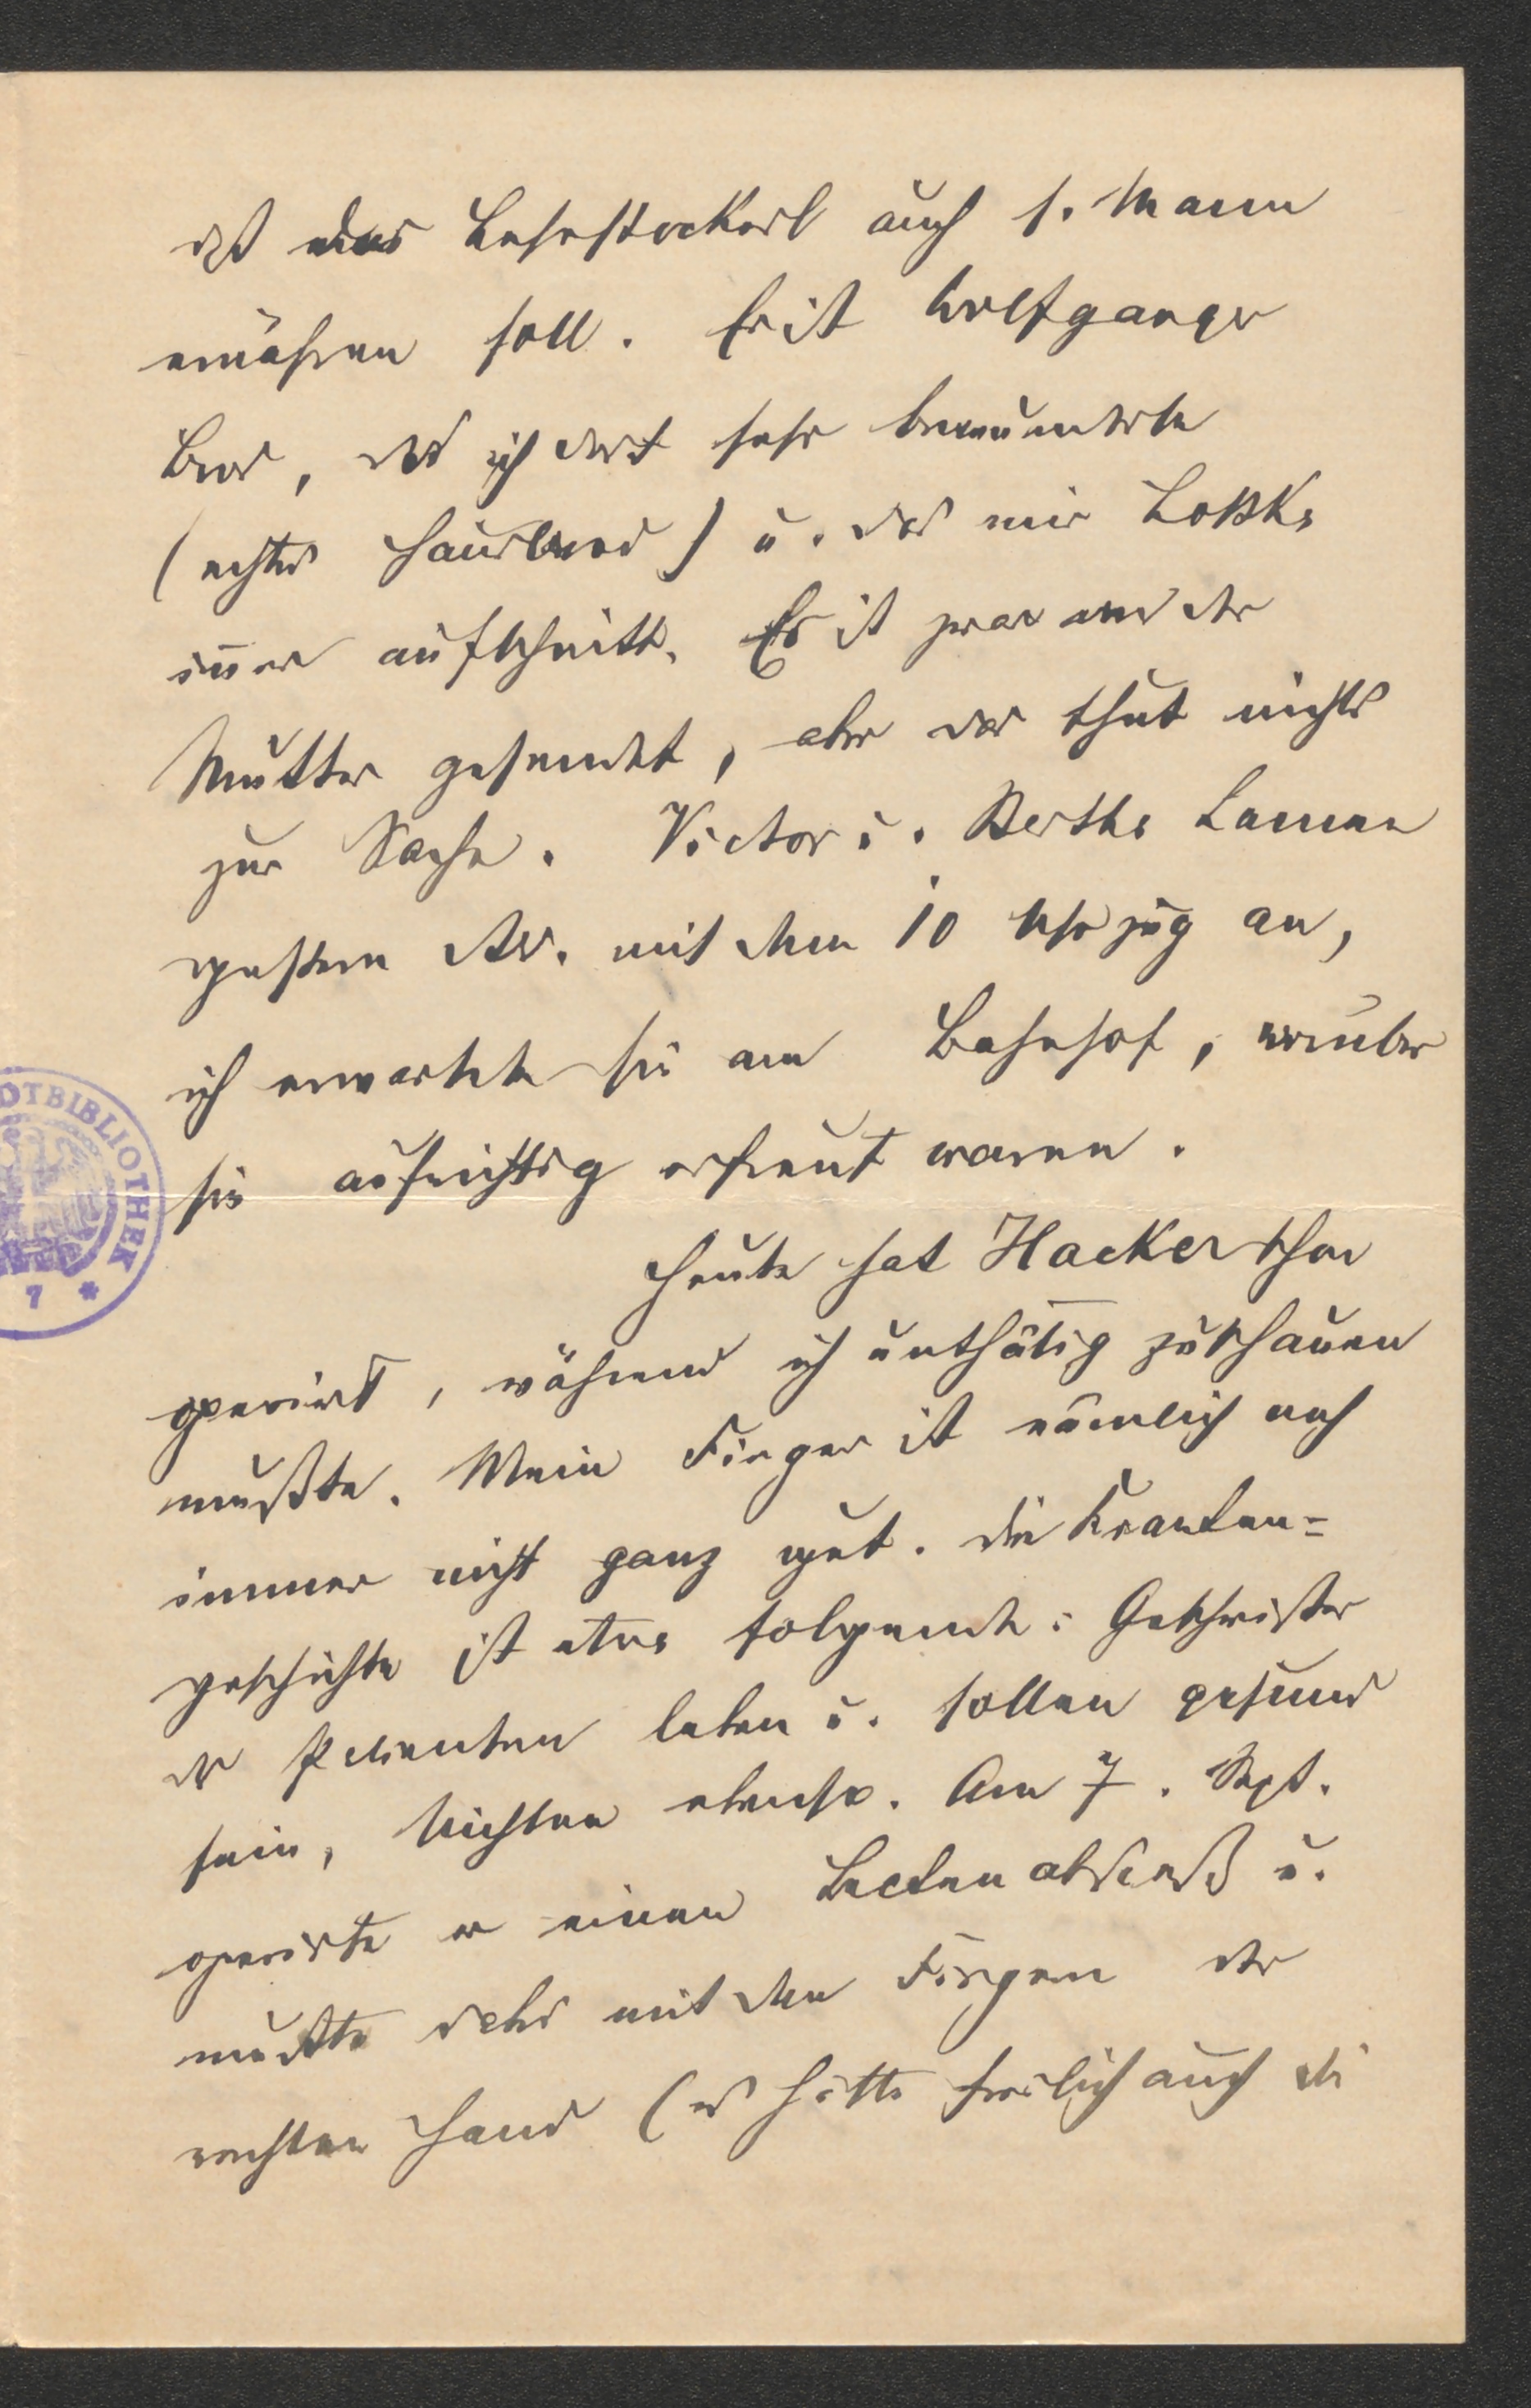 daß das Lehrstockerl auch s. Mann
ernähren soll. Es ist Wolfganger
Brod, das ich dort sehr bewunderte
(echtes Hausbrod) u. das mir Lottke
immer aufschnitt. Es ist zwar an der
Mutter gesendet, aber das thut nichts
zur Sache. Victor u. Bertha kamen
gestern Ab. mit dem 10 Uhr zug an,
ich erwartete sie am Bahnhof, worüber
sie aufrichtig erfreut waren.
Heute hat Hacker schon
operirt, während ich unthätig zuschauen
mußte. Mein Finger ist nämlich noch
immer nicht ganz gut. Die Kranken-
geschichte ist etwa folgende: Geschwister
des Patienten leben u. sollen gesund
sein, Nichten ebenso. Am 7. Sept.
operirte er einen Beckenabsceß u.
mußte dabei mit den Fingern der
rechten Hand (es hätte freilich auch die
DTBIBLIOTHEK
7 *